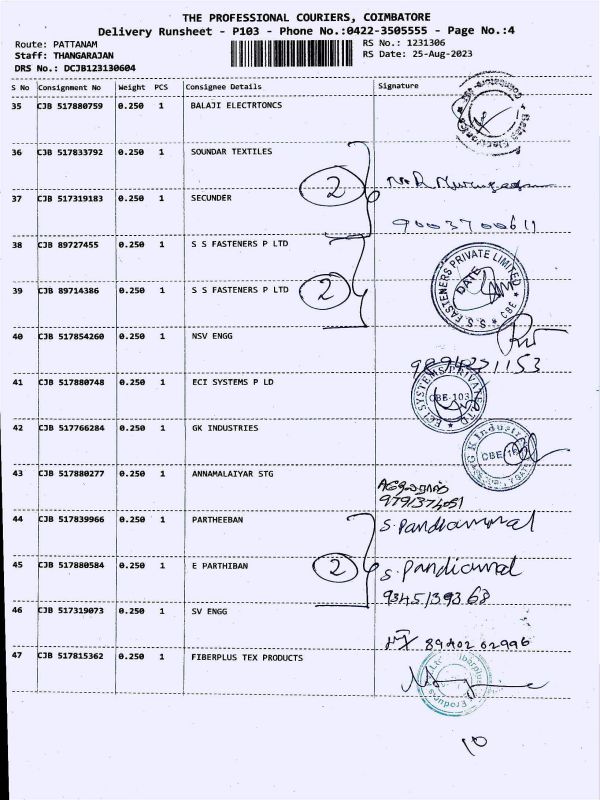 THE PROFESSIONAL COURIERS, COIMBATORE
Delivery Runsheet - P103 - Phone No.:0422-3505555 - Page No.:4
Route: PATTANAM RS No.: 1231306
Staff: THANGARAJAN RS Date: 25-Aug-2023
DRS No.: DCJB123130604
S No Consignment No Weight PCS Consignee Details Signature
35 CJB 517880759 0.250 1 BALAJI ELECTRTONCS
36 CJB 517833792 0.250 1 SOUNDAR TEXTILES
2
37 CJB 517319183 0.250 1 SECUNDER
9003700611
38 CJB 89727455 0.250 1 S S FASTENERS P LTD
S.S. FASTENERS PRIVATE LIMITED
DATE
CBE
39 CJB 89714386 0.250 1 S S FASTENERS P LTD
2
40 CJB 517854260 0.250 1 NSV ENGG
41 CJB 517880748 0.250 1 ECI SYSTEMS P LD
ECI SYSTEMS PRIVATE LTD
CBE-103
42 CJB 517766284 0.250 1 GK INDUSTRIES
G K Industri
CBE
43 CJB 517880277 0.250 1 ANNAMALAIYAR STG
44 CJB 517839966 0.250 1 PARTHEEBAN
S. Pandiammal
45 CJB 517880584 0.250 1 E PARTHIBAN
2
S. Pandiamal
9345139368
46 CJB 517319073 0.250 1 SV ENGG
8940262996
47 CJB 517815362 0.250 1 FIBERPLUS TEX PRODUCTS
10